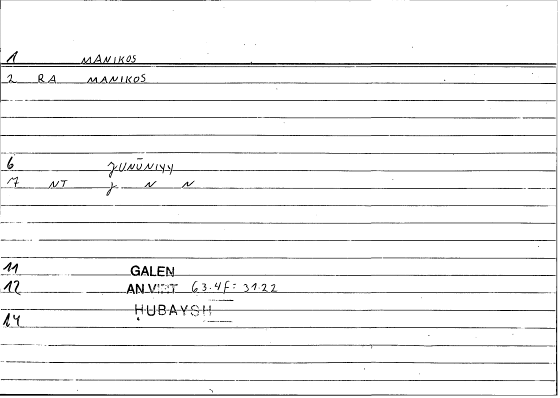 1 MANIKOS
2 RA MANIKOS
6 JUNŪNIYY
7 NT J N N
11 GALEN
12 AN.VIRT 63.4F: 31.22
ḤUBAYSH
14